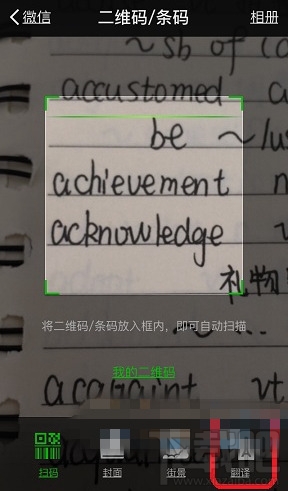 微信 二维码/条码 相册
~ sb of
accustomed
be ~/us
achievement
acknowledge
礼物
将二维码/条码放入框内，即可自动扫描
~...
我的二维码
acquaint vt
扫码 封面 街景 翻译